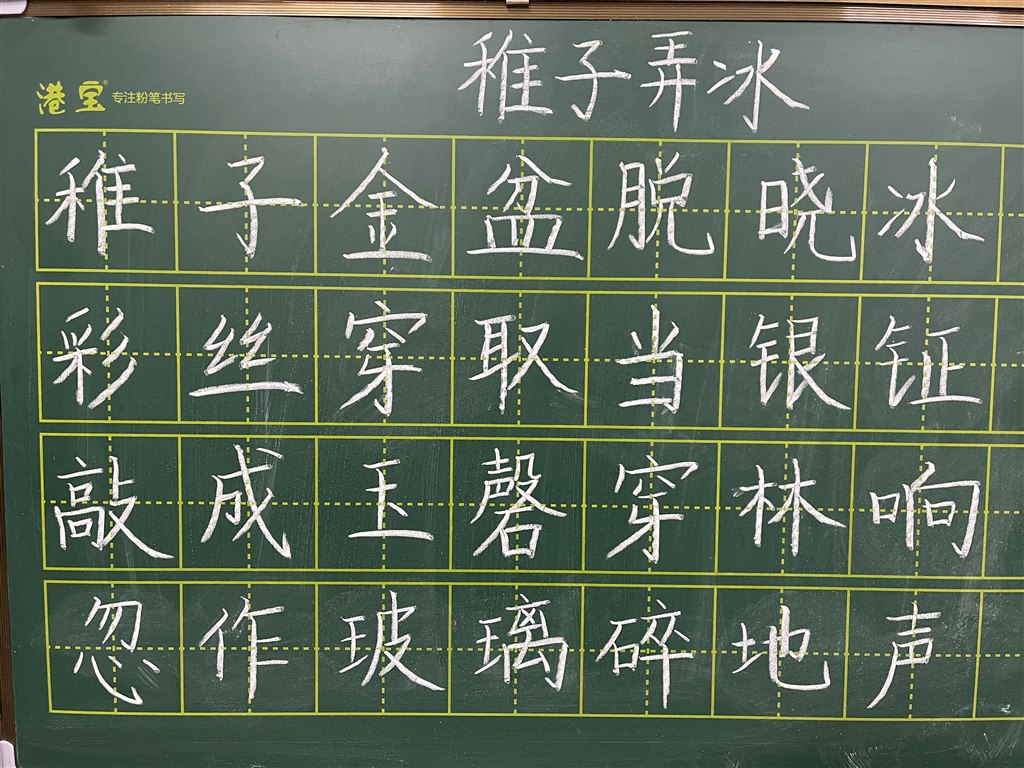 稚子弄冰
港宝® 专注粉笔书写
稚子金盆脱晓冰
彩丝穿取当银钲
敲成玉磬穿林响
忽作玻璃碎地声